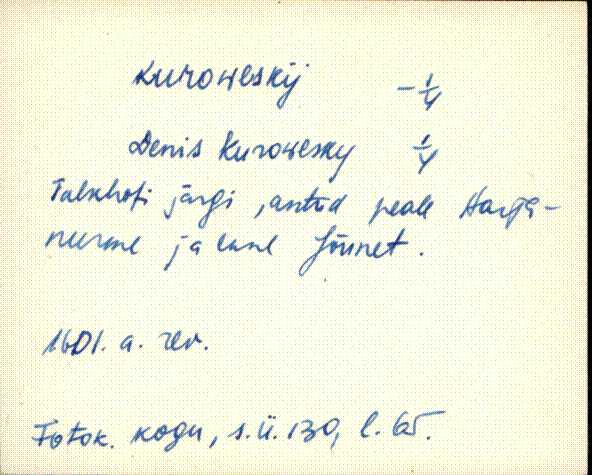 Kurowskij -1/4
Denis Kurowsky 1/4
Talkhofi järgi, antud peale Harja-
nurme ja enne Jõunet.
1601. a. rev.
Fotok. kogu, s.ü. 130, l. 65.